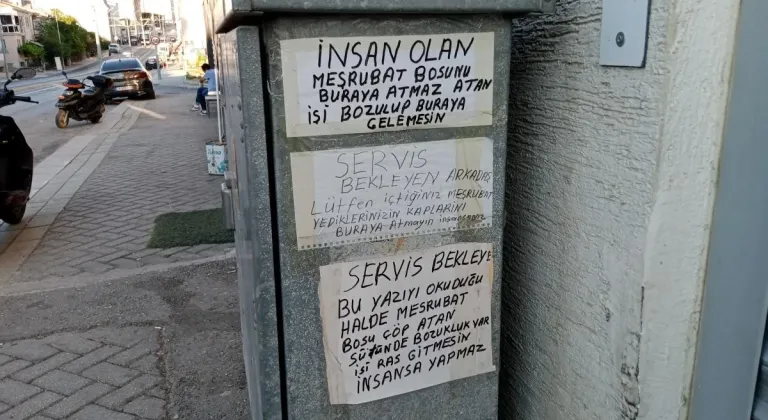 İNSAN OLAN
MEŞRUBAT BOSUNU
BURAYA ATMAZ ATAN
İŞİ BOZULUP BURAYA
GELEMESİN
SERVİS
BEKLEYEN ARKADAŞ
LÜTFEN İÇTİĞİNİZ MEŞRUBAT
YEDİKLERİNİZİN KAPLARINI
BURAYA ATMAYIN
SERVİS BEKLEYE
BU YAZIYI OKUDUĞU
HALDE MEŞRUBAT
BOŞU ÇÖP ATAN
SÜTÜNDE BOZUKLUK VAR
İŞİ RAS GİTMESİN
İNSANSA YAPMAZ